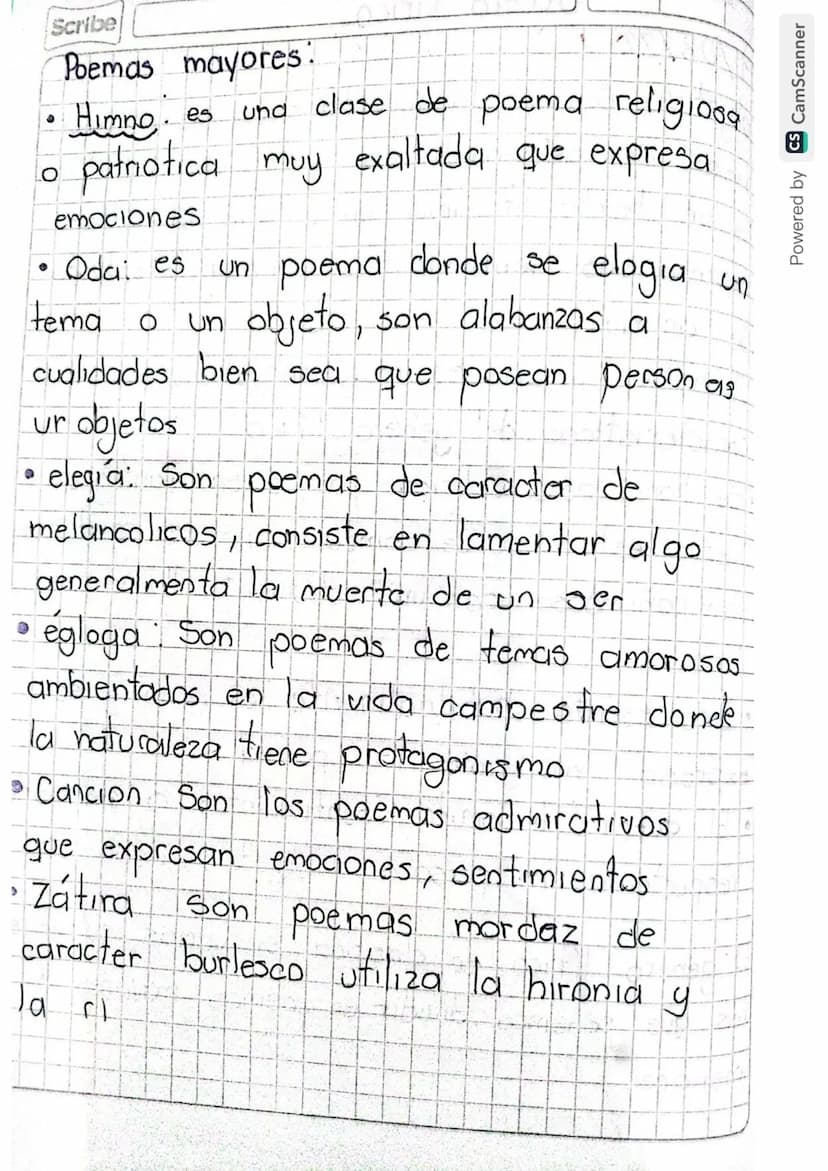 Scribe
Poemas mayores:
• Himno: es una clase de poema religiosa
o patriotica muy exaltada que expresa
emociones
• Oda: es un poema donde se elogia un
tema o un objeto, son alabanzas a
cualidades bien sea que posean personas
ur objetos
• elegía: Son poemas de caracter de
melancolicos, consiste en lamentar algo
generalmenta la muerte de un ser
• égloga: Son poemas de temas amorosos
ambientados en la vida campestre donde
la naturaleza tiene protagonismo
• Cancion Son los poemas admirativos
que expresan emociones, sentimientos
• Zátira son poemas mordaz de
caracter burlesco utiliza la hironia y
la ri
Powered by CS CamScanner